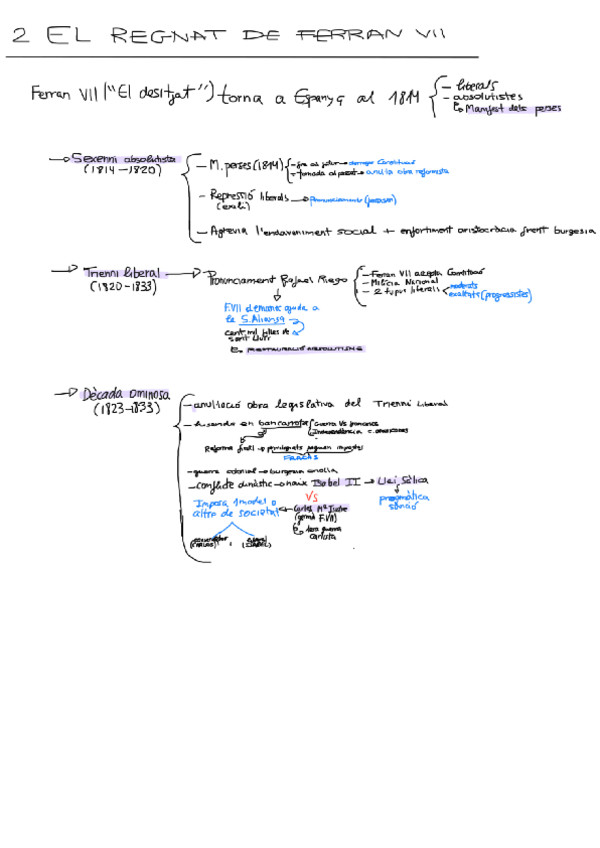 2 EL REGNAT DE FERRAN VII
Ferran VII ("El desitjat") torna a Espanya al 1814
- liberals
- absolutistes
Manifest dels perses
Sexenni absolutista
(1814-1820)
- M. perses (1814)
anul·la obra reformista
- Repressió liberals → Pronunciaments
(exili)
- Agreuja l'endarreriment social + enfortiment aristocràcia front burgesia
Trienni liberal → Pronunciament Rafael Riego
(1820-1833)
- Ferran VII accepta Constitució
- Milícia Nacional
- 2 tipus liberals
moderats
exaltats (progressistes)
F.VII demana ajuda a
la S. Aliança
cent mil fills de
sant Lluís
RESTAURACIÓ ABSOLUTISME
Dècada ominosa
(1823-1833)
- anul·lació obra legislativa del Trienni Liberal
- hisenda en bancarrota
Guerra Vs francesos
Independència c. americanes
Reforma fiscal → privilegiats paguen impostos
FRACÀS
- guerra colonial → burgesia
- conflicte dinàstic → naix Isabel II → Llei Sàlica
pragmàtica
sanció
VS
Carles Mª Isidre
(germà F.VII)
1era guerra
carlista
Imposa 1 model o
altre de societat
(CARLES)
(ISABEL)